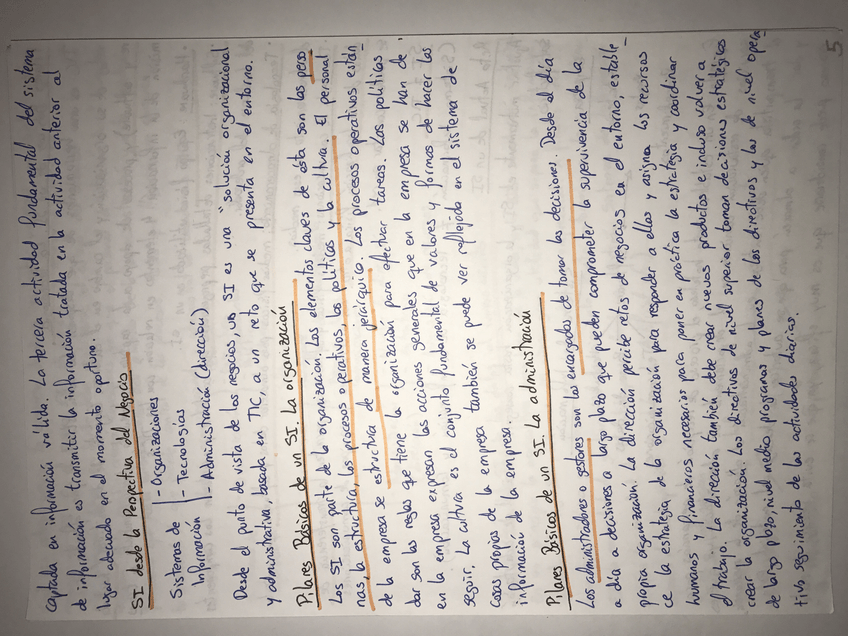 captada en información válida. La tercera actividad fundamental del sistema
de información es transmitir la información tratada en la actividad anterior al
lugar adecuado en el momento oportuno.
SI desde la Perspectiva del Negocio
Sistemas de
Información
- Organizaciones
- Tecnologías
- Administración (dirección)
Desde el punto de vista de los negocios, un SI es una "solución organizacional
y administrativa, basada en TIC, a un reto que se presenta en el entorno.
Pilares Básicos de un SI. La organización
Los SI son parte de la organización. Los elementos claves de ésta son las perso
nas, la estructura, los procesos operativos, las políticas y la cultura. El personal
de la empresa se estructura de manera jerárquica. Los procesos operativos están-
dar son las reglas que tiene la organización para efectuar tareas. Las políticas
en la empresa expresan las acciones generales que en la empresa se han de
seguir. La cultura es el conjunto fundamental de valores y formas de hacer las
cosas propias de la empresa también se puede ver reflejada en el sistema de
información de la empresa.
Pilares Básicos de un SI. La administración
Los administradores o gestores son los encargados de tomar las decisiones. Desde el día
a día a decisiones a largo plazo que pueden comprometer la supervivencia de la
propia organización. La dirección percibe retos de negocios en el entorno, estable-
ce la estrategia de la organización para responder a ellos y asigna los recursos
humanos y financieros necesarios para poner en práctica la estrategia y coordinar
el trabajo. La dirección también debe crear nuevos productos e incluso volver a
crear la organización. Los directivos de nivel superior toman decisiones estratégicas
de largo plazo, nivel medio programas y planes de los directivos y los de nivel opera-
tivo seguimiento de las actividades diarias.
5